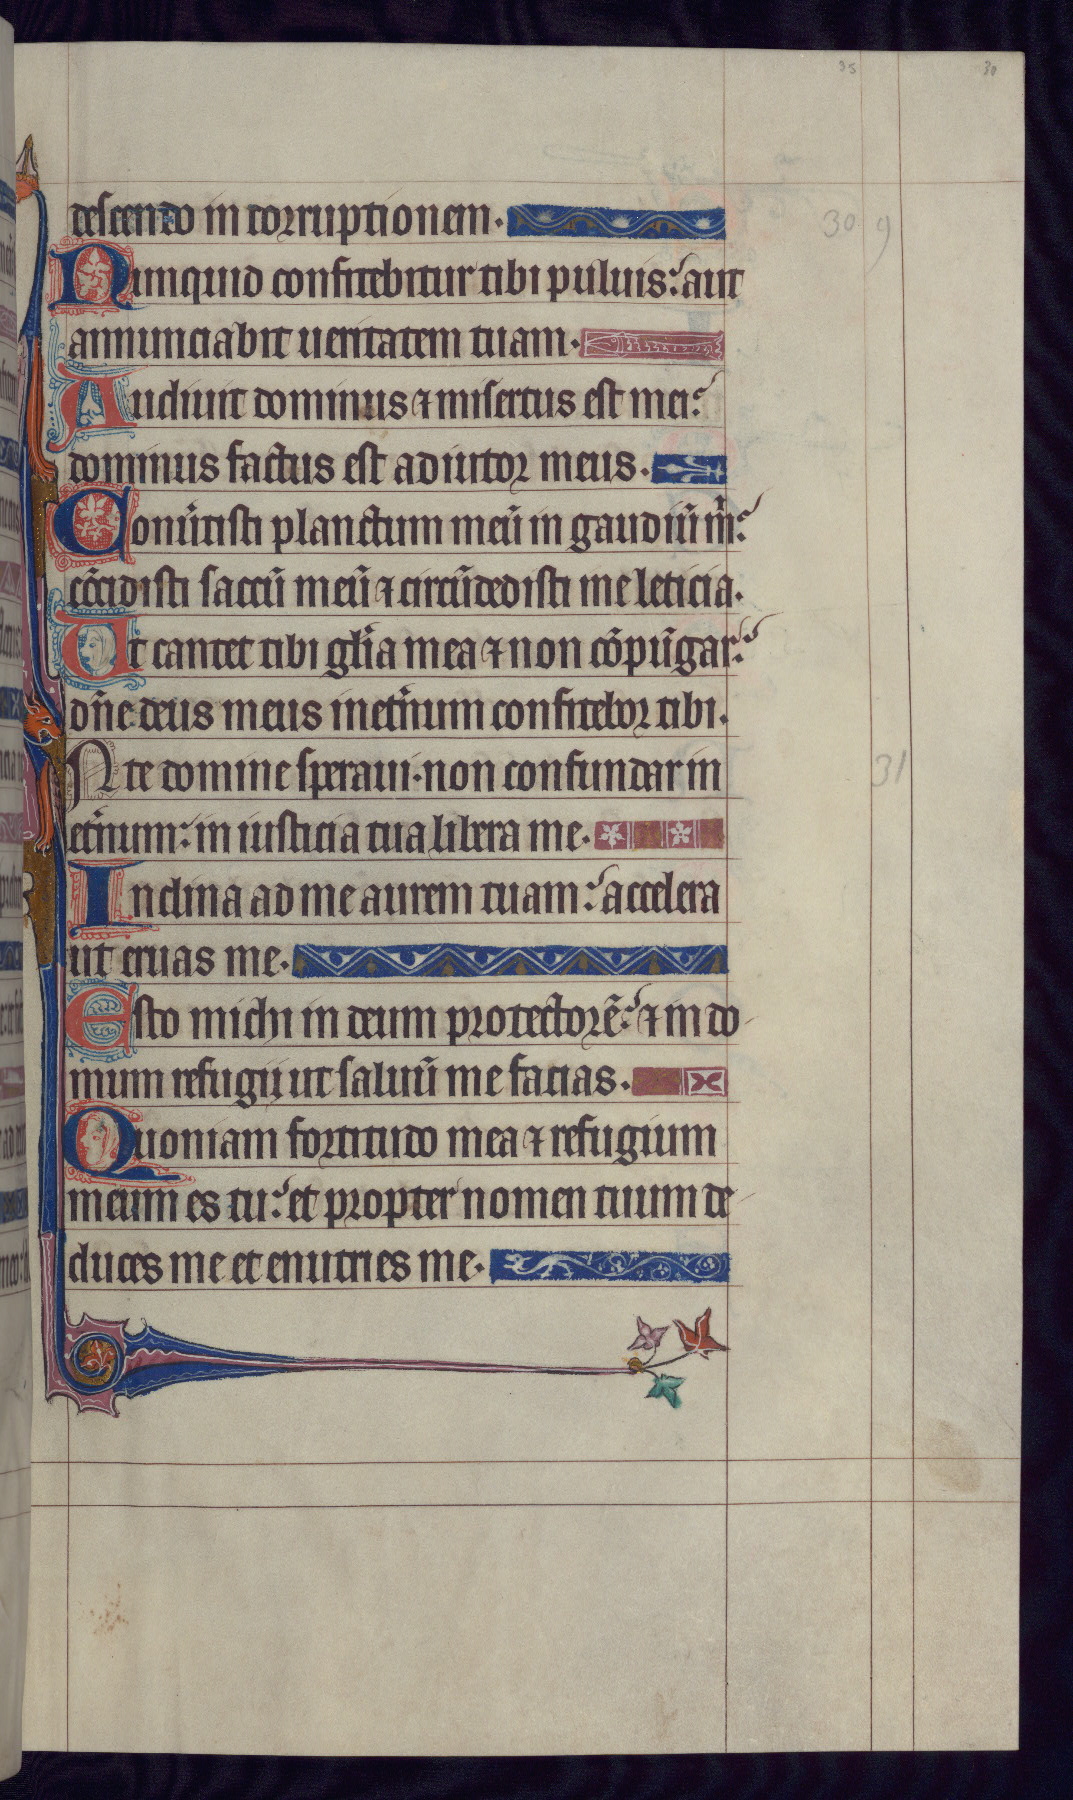 35 30
descendo in corruptionem.
30 9
Numquid confitebitur tibi puluis: aut
annunciabit ueritatem tuam.
Audiuit dominus ⁊ misertus est mei:
dominus factus est adiutor meus.
Conũtisti planctum meũ in gaudiũ m̃:
cõcidisti saccũ meũ ⁊ circũdedisti me leticia.
Ut cantet tibi gl̃ia mea ⁊ non cõpũgar:
dñe deus meus inet̃num confitebor tibi.
N te domine speraui. non confundar in
31
et̃num: in iusticia tua libera me.
Inclina ad me aurem tuam: accelera
ut eruas me.
Esto michi in deum protectorẽ: ⁊ in do
mum refugij ut saluũ me facias.
Quoniam fortitudo mea ⁊ refugium
meum es tu: et propter nomen tuum de
duces me et enutries me.